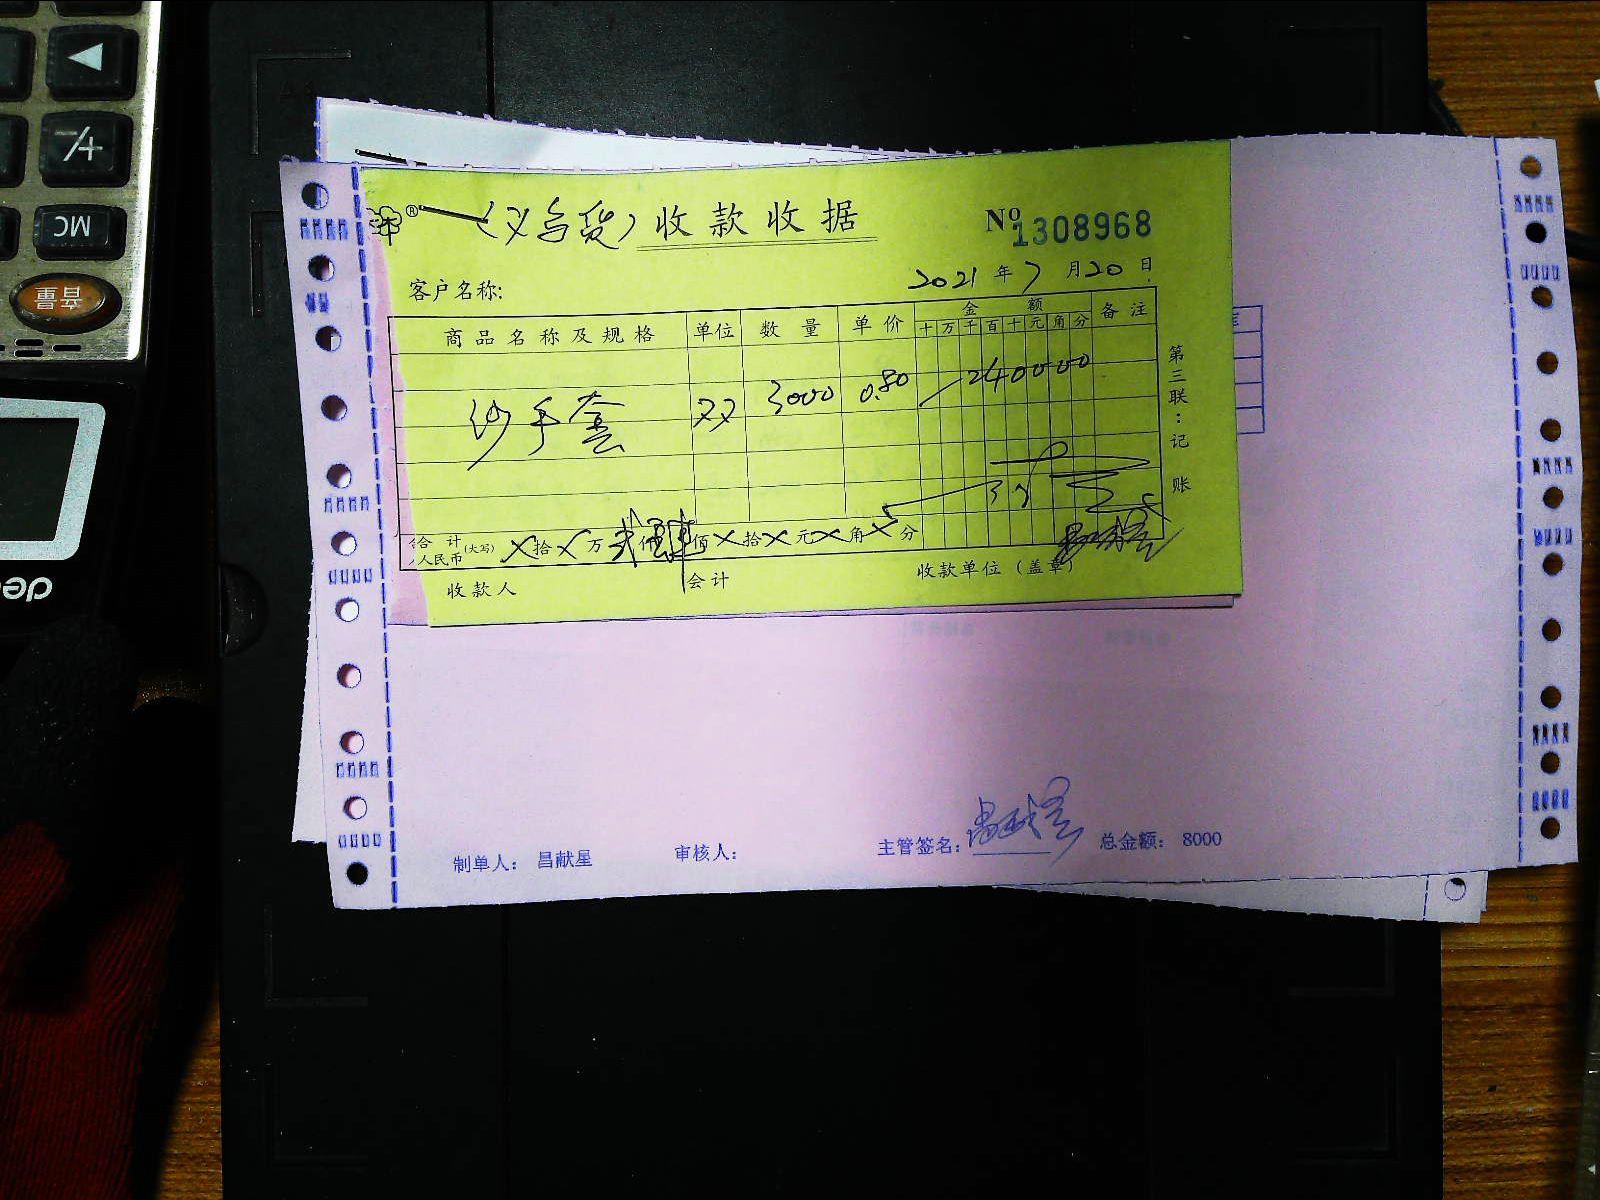 ®
(义乌货)收款收据 № 1308968
客户名称: 2021年7月20日
商品名称及规格 单位 数量 单价 金额 备注
十万千百十元角分
纱手套 双 3000 0.80 240000
第三联:记账
合计人民币(大写) ×拾×万贰仟肆佰×拾×元×角×分
收款人 会计 收款单位(盖章)
制单人: 昌献星 审核人: 主管签名: 昌献星 总金额: 8000
MC